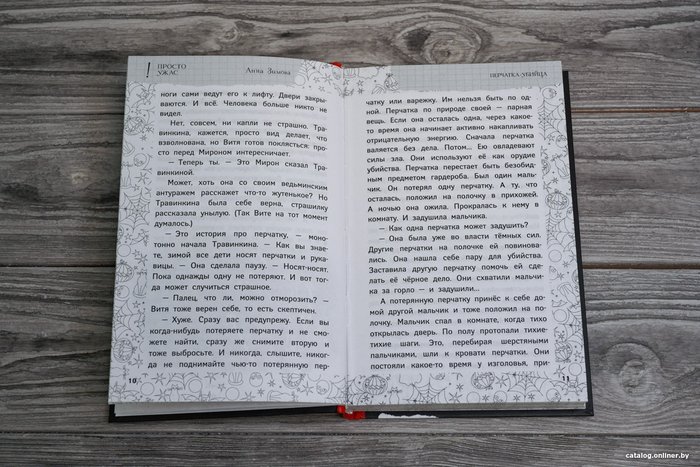 ПРОСТО
УЖАС
Анна Зимова
ноги сами ведут его к лифту. Двери закры-
ваются. И всё. Человека больше никто не
видел.
Нет, совсем, ни капли не страшно. Тра-
винкина, кажется, просто вид делает, что
взволнована, но Витя готов поклясться: про-
сто перед Мироном интересничает.
— Теперь ты. — Это Мирон сказал Тра-
винкиной.
Может, хоть она со своим ведьминским
антуражем расскажет что-то жутенькое? Но
Травинкина была себе верна, страшилку
рассказала унылую. (Так Вите на тот момент
думалось.)
— Это история про перчатку, — моно-
тонно начала Травинкина. — Как вы знае-
те, зимой все дети носят перчатки и рука-
вицы. — Она сделала паузу. — Носят-носят.
Пока однажды одну не потеряют. И вот то-
гда может случиться страшное.
— Палец, что ли, можно отморозить? —
Витя тоже верен себе, то есть скептичен.
— Хуже. Сразу вас предупрежу. Если вы
когда-нибудь потеряете перчатку и не смо-
жете найти, сразу же снимите вторую и
тоже выбросьте. И никогда, слышите, никог-
да не поднимайте чью-то потерянную пер-
10
ПЕРЧАТКА-УБИЙЦА
чатку или варежку. Им нельзя быть по од-
ной. Перчатка по природе своей — парная
вещь. Если она осталась одна, через какое-
то время она начинает активно накапливать
отрицательную энергию. Сначала перчатка
валяется без дела. Потом... Ею овладевают
силы зла. Они используют её как орудие
убийства. Перчатка перестает быть безобид-
ным предметом гардероба. Был один маль-
чик. Он потерял одну перчатку. А ту, что
осталась, положил на полочку в прихожей.
А ночью она ожила. Прокралась к нему в
комнату. И задушила мальчика.
— Как одна перчатка может задушить?
— Она была уже во власти тёмных сил.
Другие перчатки на полочке ей повинова-
лись. Она нашла себе пару для убийства.
Заставила другую перчатку помочь ей сде-
лать её чёрное дело. Они схватили мальчи-
ка за горло — и задушили...
А потерянную перчатку принёс к себе до-
мой другой мальчик и тоже положил на по-
лочку. Мальчик спал в комнате, когда тихо
открылась дверь. По полу протопали тихие-
тихие шаги. Это, перебирая шерстяными
пальчиками, шли к кровати перчатки. Они
постояли какое-то время у изголовья, при-
11
catalog.onliner.by